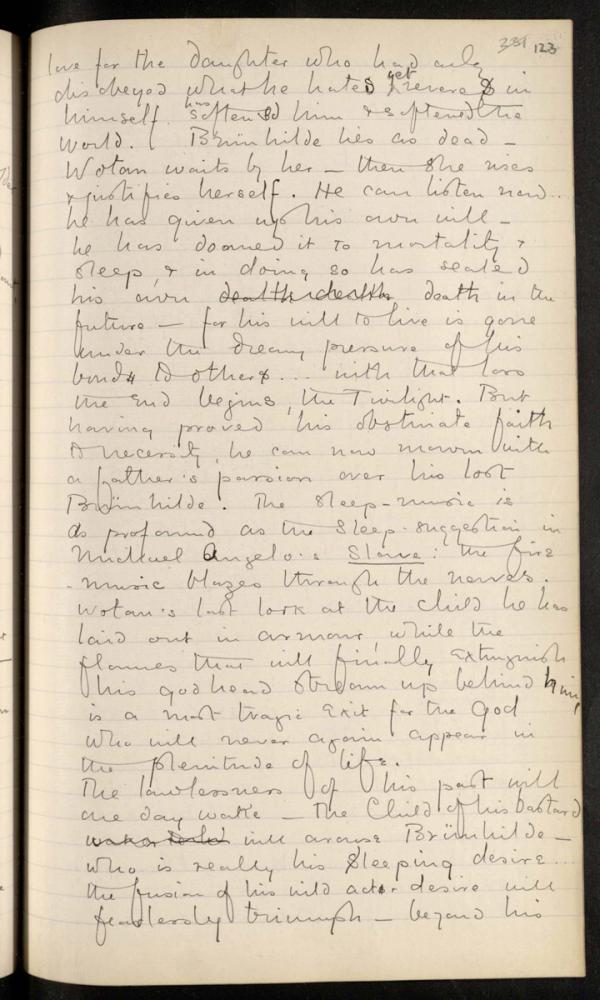 331 123
love for the daughter who had only
disobeyed what he hated yet reveres in
himself. has softened him & softened the
world. Brünhilde lies as dead –
Wotan waits by her – then she rises
& justifies herself. He can listen now..
he has given up his own will –
he has doomed it to mortality &
sleep, & in doing so has sealed
his own death death death in the
future – for his will to live is gone
under the dreamy pressure of his
bonds to others... with that loss
the End begins, the Twilight. But
having proved his obstinate faith
to necessity, he can now mourn with
a father's passion over his lost
Brünhilde. The sleep-music is
as profound as the sleep-suggestion in
Michael Angelo's Slave: the fire
-music blazes through the nerves.
Wotan's last look at the child he has
laid out in armour, while the
flames that will finally extinguish
his godhead stream up behind him,
is a most tragic Exit for the God
who will never again appear in
the plenitude of life.
The lawlessness of his past will
one day wake – the Child of his bastard
will arouse Brünhilde –
who is really his sleeping desire...
the fusion of his wild act & desire will
fearlessly triumph – beyond his